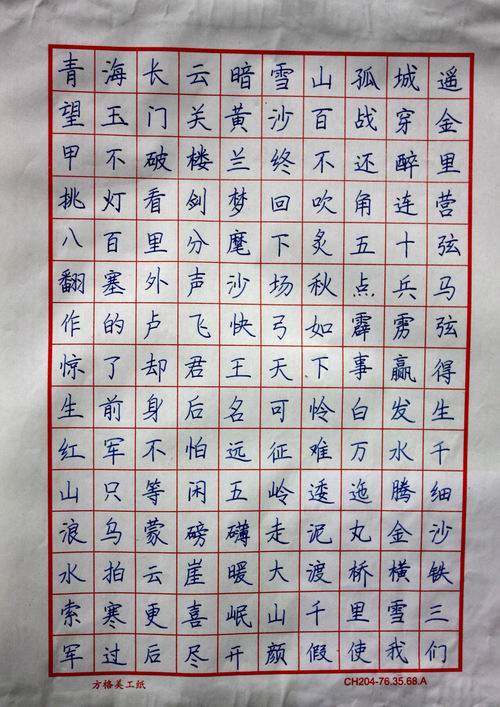 青海长云暗雪山孤城遥
望玉门关黄沙百战穿金
甲不破楼兰终不还醉里
挑灯看剑梦回吹角连营
八百里分麾下炙五十弦
翻塞外声沙场秋点兵马
作的卢飞快弓如霹雳弦
惊了却君王天下事赢得
生前身后名可怜白发生
红军不怕远征难万水千
山只等闲五岭逶迤腾细
浪乌蒙磅礴走泥丸金沙
水拍云崖暖大渡桥横铁
索寒更喜岷山千里雪三
军过后尽开颜假使我们
方格美工纸 CH204-76.35.68.A